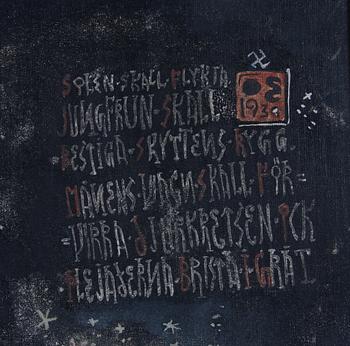 SOLEN·SKALL·FLYKTA
JUNGFRUN·SKALL
BESTIGA·SKYTTENS·RYGG·
MÅNENS·VAGN·SKALL·FÖR=
=VIRRA·DJURKRETSEN·OCK
PLEJADERNA·BRISTA·I·GRÅT